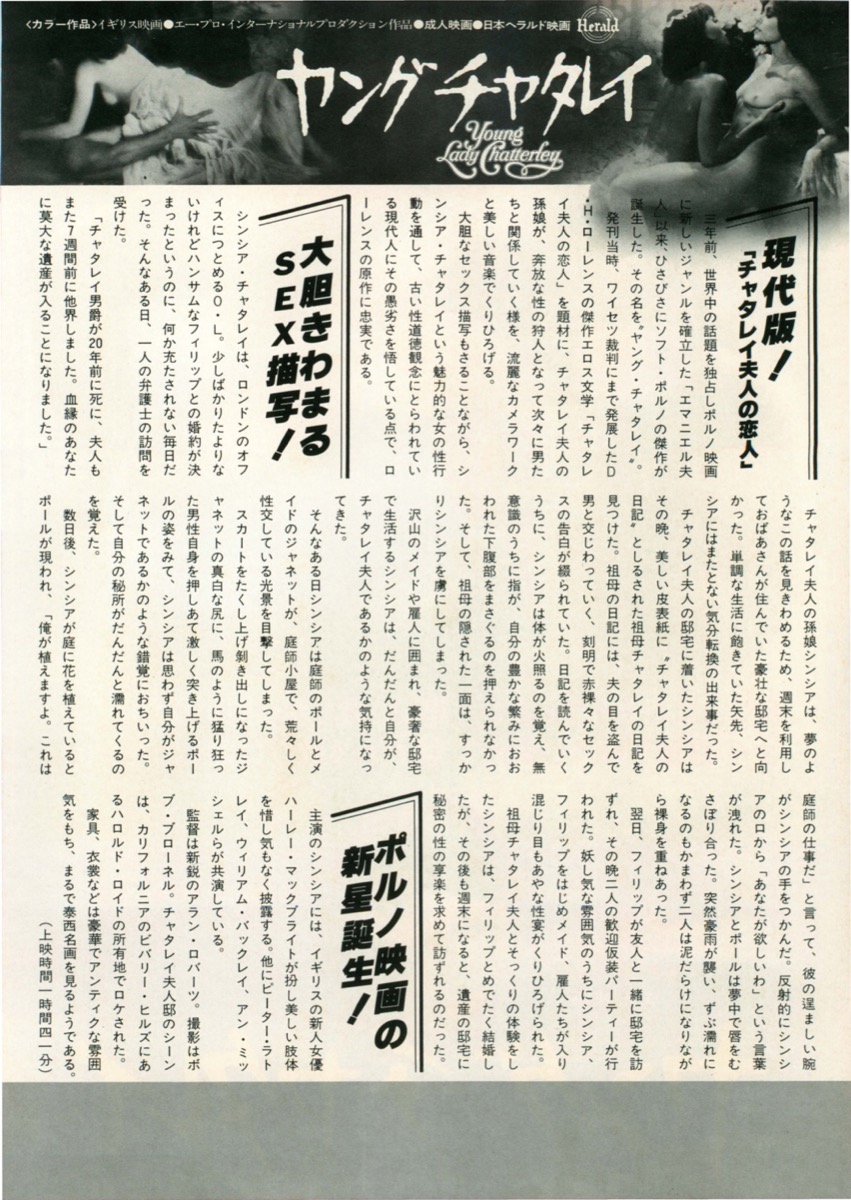 〈カラー作品〉イギリス映画●エー・プロ・インターナショナルプロダクション作品●成人映画●日本ヘラルド映画 Herald
ヤング チャタレイ
Young
Lady Chatterley
現代版！
「チャタレイ夫人の恋人」
三年前、世界中の話題を独占しポルノ映画
に新しいジャンルを確立した「エマニエル夫
人」以来、ひさびさにソフト・ポルノの傑作が
誕生した。その名を〝ヤング・チャタレイ〟。
発刊当時、ワイセツ裁判にまで発展したD
・H・ローレンスの傑作エロス文学「チャタレ
イ夫人の恋人」を題材に、チャタレイ夫人の
孫娘が、奔放な性の狩人となって次々に男た
ちと関係していく様を、流麗なカメラワーク
と美しい音楽でくりひろげる。
大胆なセックス描写もさることながら、シ
ンシア・チャタレイという魅力的な女の性行
動を通して、古い性道徳観念にとらわれてい
る現代人にその愚劣さを悟している点で、ロ
ーレンスの原作に忠実である。
大胆きわまる
SEX描写！
シンシア・チャタレイは、ロンドンのオフ
ィスにつとめるO・L。少しばかりたよりな
いけれどハンサムなフィリップとの婚約が決
まったというのに、何か充たされない毎日だ
った。そんなある日、一人の弁護士の訪問を
受けた。
「チャタレイ男爵が20年前に死に、夫人も
また7週間前に他界しました。血縁のあなた
に莫大な遺産が入ることになりました。」
チャタレイ夫人の孫娘シンシアは、夢のよ
うなこの話を見きわめるため、週末を利用し
ておばあさんが住んでいた豪壮な邸宅へと向
かった。単調な生活に飽きていた矢先、シン
シアにはまたとない気分転換の出来事だった。
チャタレイ夫人の邸宅に着いたシンシアは
その晩、美しい皮表紙に〝チャタレイ夫人の
日記〟としるされた祖母チャタレイの日記を
見つけた。祖母の日記には、夫の目を盗んで
男と交じわっていく、刻明で赤裸々なセック
スの告白が綴られていた。日記を読んでいく
うちに、シンシアは体が火照るのを覚え、無
意識のうちに指が、自分の豊かな繁みにおお
われた下腹部をまさぐるのを押えられなかっ
た。そして、祖母の隠された一面は、すっか
りシンシアを虜にしてしまった。
沢山のメイドや雇人に囲まれ、豪奢な邸宅
で生活するシンシアは、だんだんと自分が、
チャタレイ夫人であるかのような気持になっ
てきた。
そんなある日シンシアは庭師のポールとメ
イドのジャネットが、庭師小屋で、荒々しく
性交している光景を目撃してしまった。
スカートをたくし上げ剝き出しになったジ
ャネットの真白な尻に、馬のように猛り狂っ
た男性自身を押しあて激しく突き上げるポー
ルの姿をみて、シンシアは思わず自分がジャ
ネットであるかのような錯覚におちいった。
そして自分の秘所がだんだんと濡れてくるの
を覚えた。
数日後、シンシアが庭に花を植えていると
ポールが現われ、「俺が植えますよ。これは
庭師の仕事だ」と言って、彼の逞ましい腕
がシンシアの手をつかんだ。反射的にシンシ
アの口から「あなたが欲しいわ」という言葉
が洩れた。シンシアとポールは夢中で唇をむ
さぼり合った。突然豪雨が襲い、ずぶ濡れに
なるのもかまわず二人は泥だらけになりなが
ら裸身を重ねあった。
翌日、フィリップが友人と一緒に邸宅を訪
ずれ、その晩二人の歓迎仮装パーティーが行
われた。妖し気な雰囲気のうちにシンシア、
フィリップをはじめメイド、雇人たちが入り
混じり目もあやな性宴がくりひろげられた。
祖母チャタレイ夫人とそっくりの体験をし
たシンシアは、フィリップとめでたく結婚し
たが、その後も週末になると、遺産の邸宅に
秘密の性の享楽を求めて訪ずれるのだった。
ポルノ映画の
新星誕生！
主演のシンシアには、イギリスの新人女優
ハーレー・マックブライトが扮し美しい肢体
を惜し気もなく披露する。他にピーター・ラト
レイ、ウィリアム・バックレイ、アン・ミッ
シェルらが共演している。
監督は新鋭のアラン・ロバーツ。撮影はボ
ブ・ブローネル。チャタレイ夫人邸のシーン
は、カリフォルニアのビバリー・ヒルズにあ
るハロルド・ロイドの所有地でロケされた。
家具、衣裳などは豪華でアンティクな雰囲
気をもち、まるで泰西名画を見るようである。
（上映時間一時間四一分）